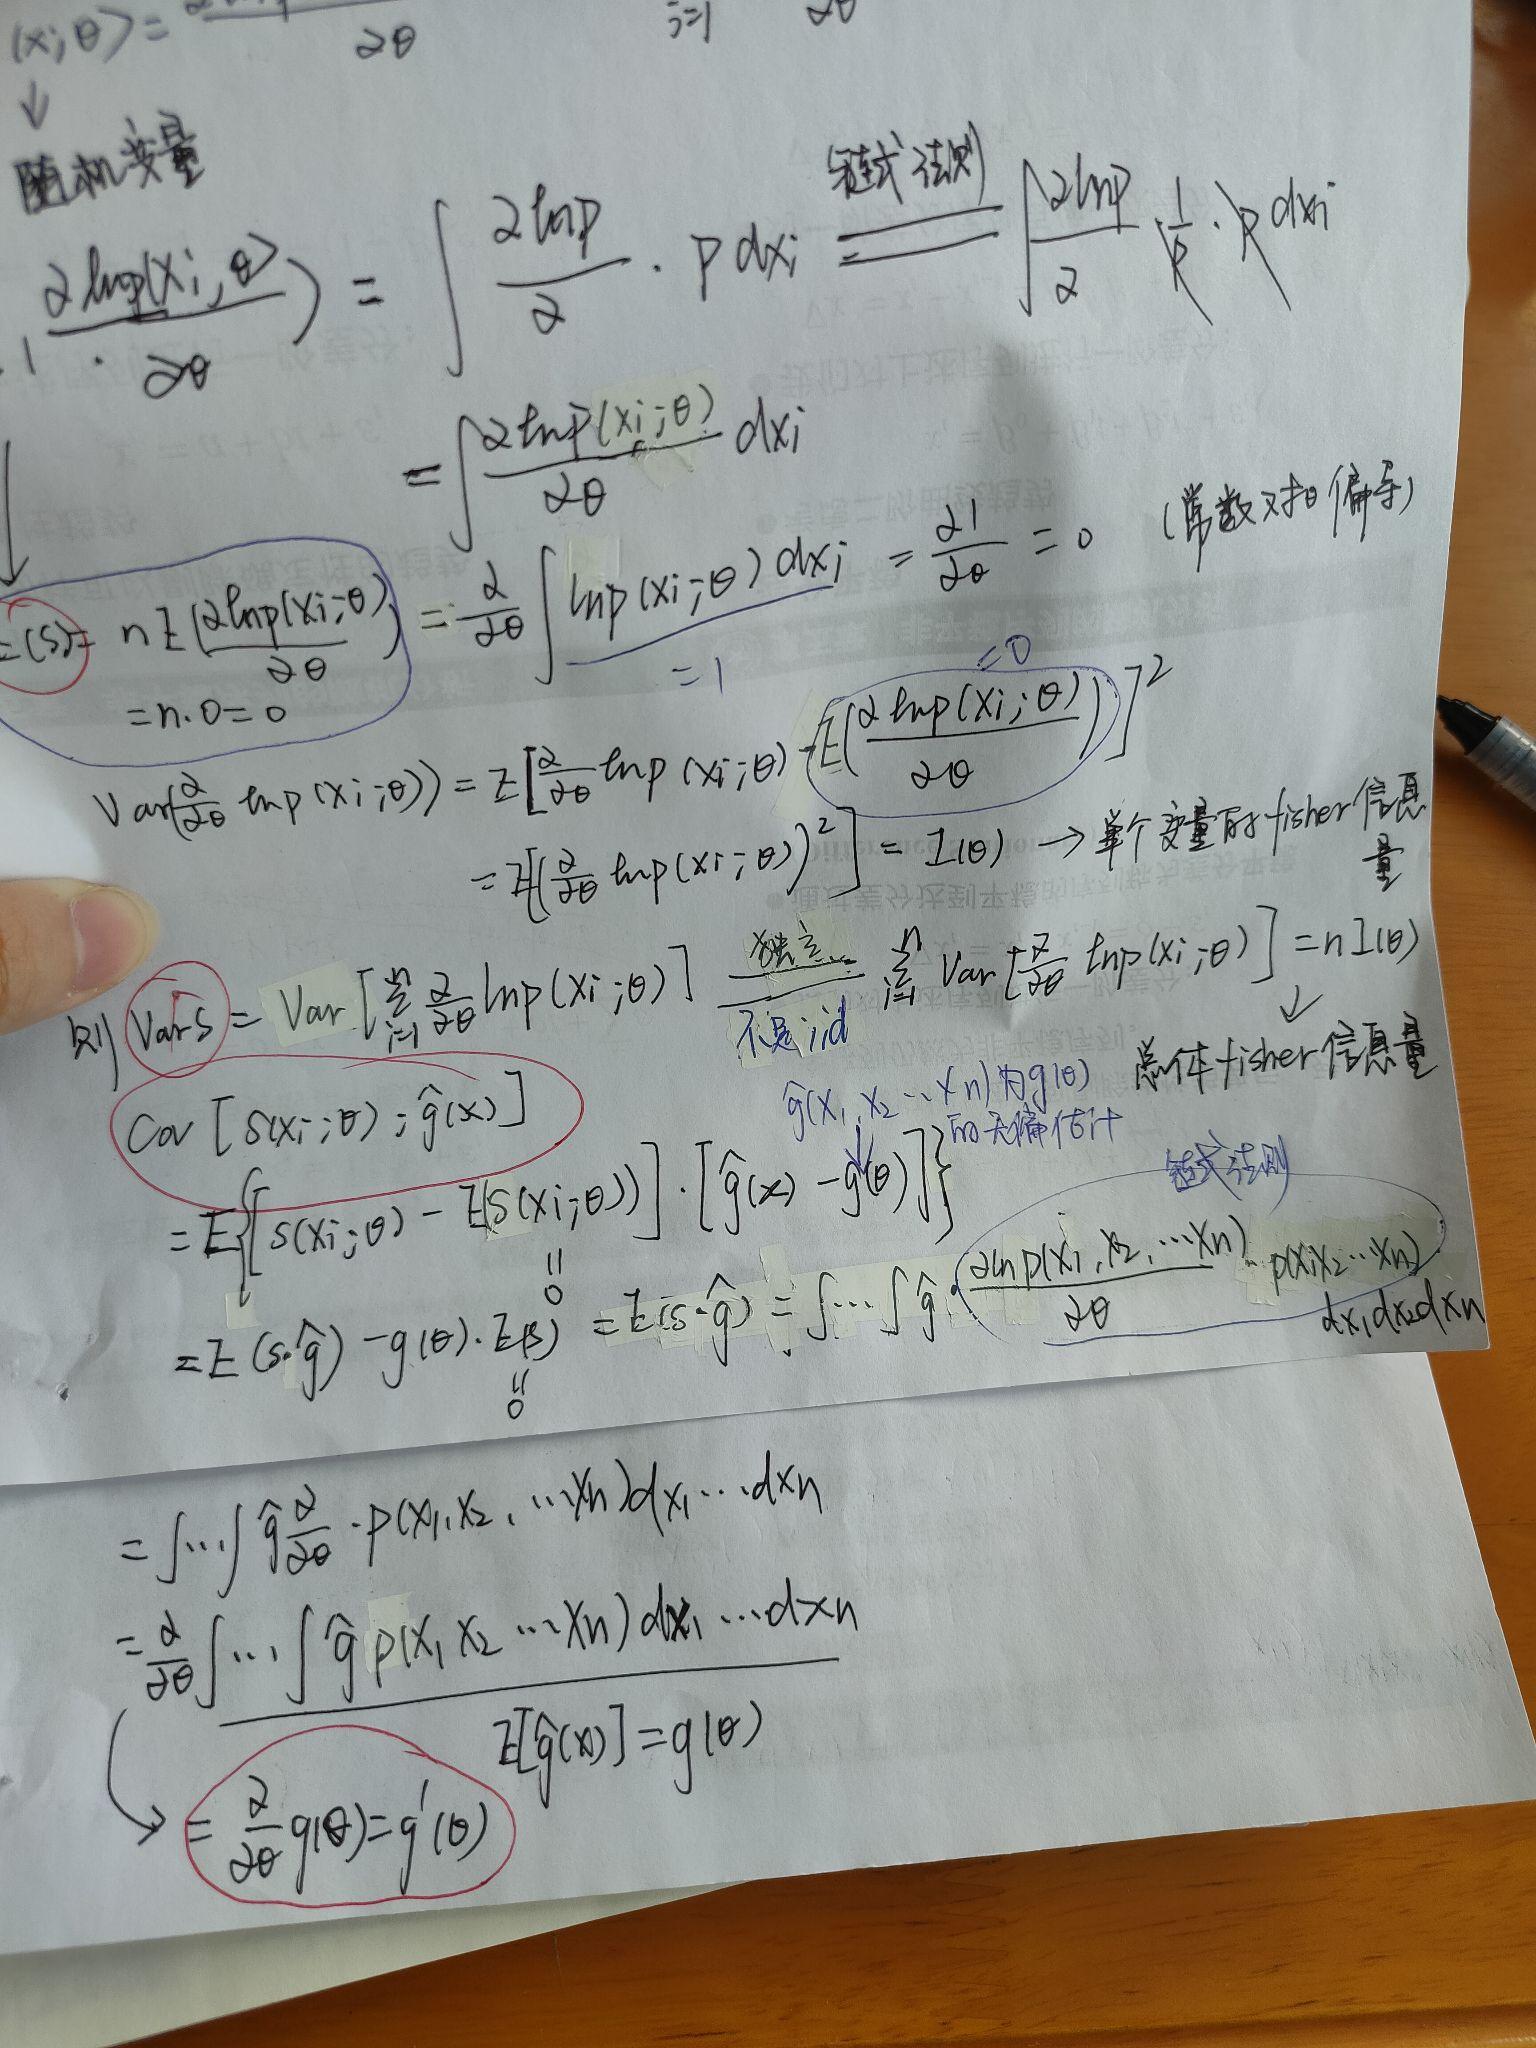 (x;θ)=
∂θ
i=1
∂θ
↓
随机变量
∂lnp(xi,θ)/∂θ) = ∫ ∂lnp/∂ · p dxi 链式法则 ∫ ∂lnp/∂ · 1/p · p dxi
= ∫ ∂lnp(xi;θ)/∂θ dxi
E(S)= nE(∂lnp(xi;θ)/∂θ) = ∂/∂θ ∫ lnp(xi;θ)dxi = ∂1/∂θ = 0 (常数对θ偏导)
=n·0=0
=1
=0
Var(∂/∂θ lnp(xi;θ)) = E[∂/∂θ lnp(xi;θ) - E(∂lnp(xi;θ)/∂θ)]²
= E[(∂/∂θ lnp(xi;θ))²] = I(θ) → 单个变量的fisher信息量
则 VarS = Var[Σ_{i=1}^n ∂/∂θ lnp(xi;θ)] 独立 Σ_{i=1}^n Var[∂/∂θ lnp(xi;θ)] = nI(θ)
不是iid
↓
总体fisher信息量
Cov[S(xi;θ);ĝ(x)]
ĝ(x1,x2…xn)为g(θ)
的无偏估计
= E{[S(xi;θ) - E(S(xi;θ))]·[ĝ(x) - g(θ)]}
=0
链式法则
= E(S·ĝ) - g(θ)·E(S) = E(S·ĝ) = ∫…∫ ĝ·∂lnp(x1,x2,…xn)/∂θ · p(x1x2…xn)
dx1dx2dxn
=0
= ∫…∫ ĝ ∂/∂θ · p(x1,x2,…xn)dx1…dxn
= ∂/∂θ ∫…∫ ĝ p(x1x2…xn)dx1…dxn
E[ĝ(x)]=g(θ)
= ∂/∂θ g(θ)=g'(θ)